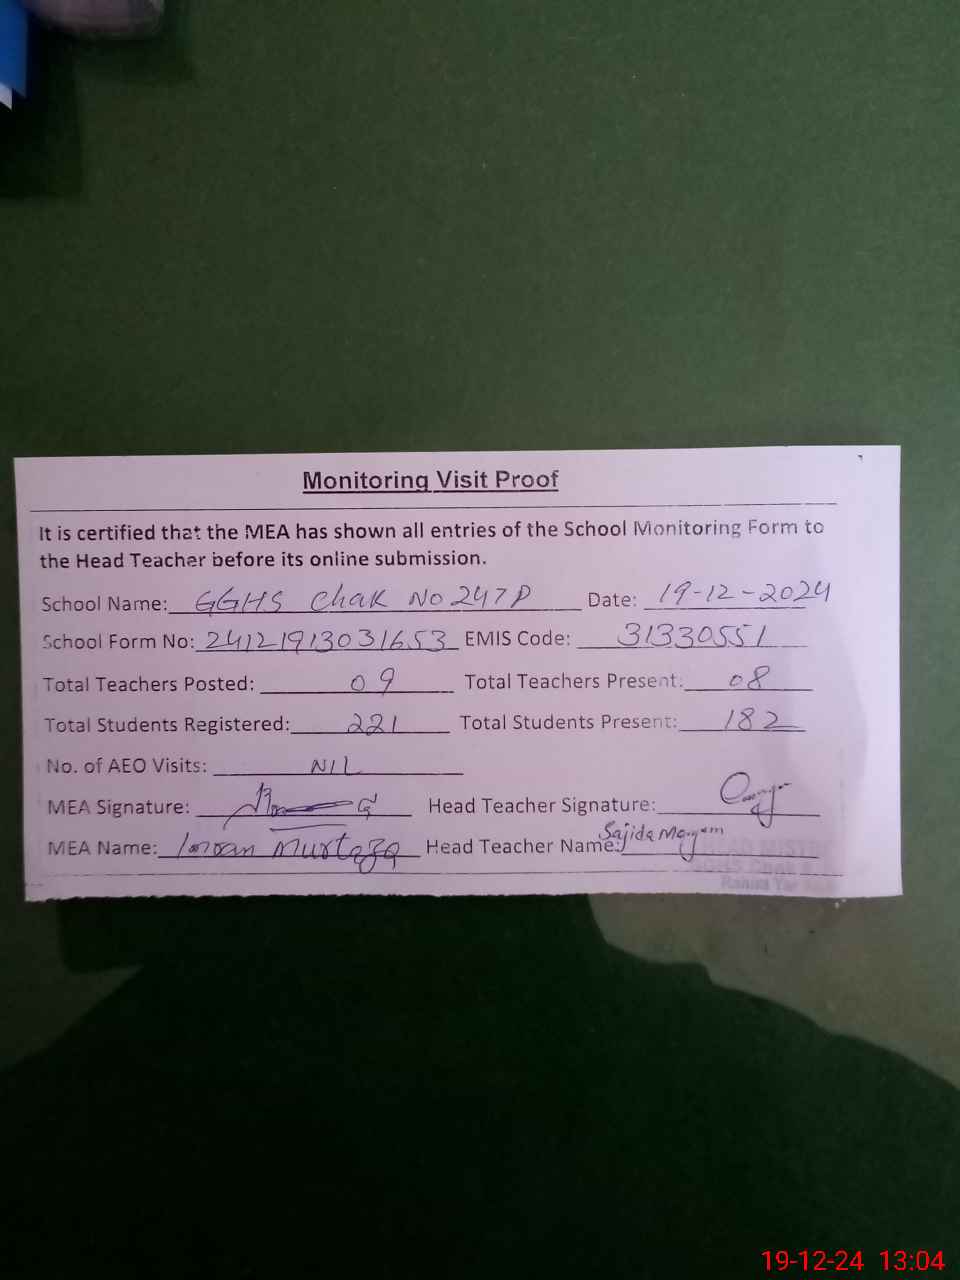 Monitoring Visit Proof
It is certified that the MEA has shown all entries of the School Monitoring Form to
the Head Teacher before its online submission.
School Name: GGHS Chak No 247P Date: 19-12-2024
School Form No: 24121913031653 EMIS Code: 31330551
Total Teachers Posted: 09 Total Teachers Present: 08
Total Students Registered: 221 Total Students Present: 182
No. of AEO Visits: NIL
MEA Signature: Head Teacher Signature:
MEA Name: Imran Murtaza Head Teacher Name: Sajida Maryam
HEAD MISTR
GGHS Chak
Rahim Yar
19-12-24 13:04